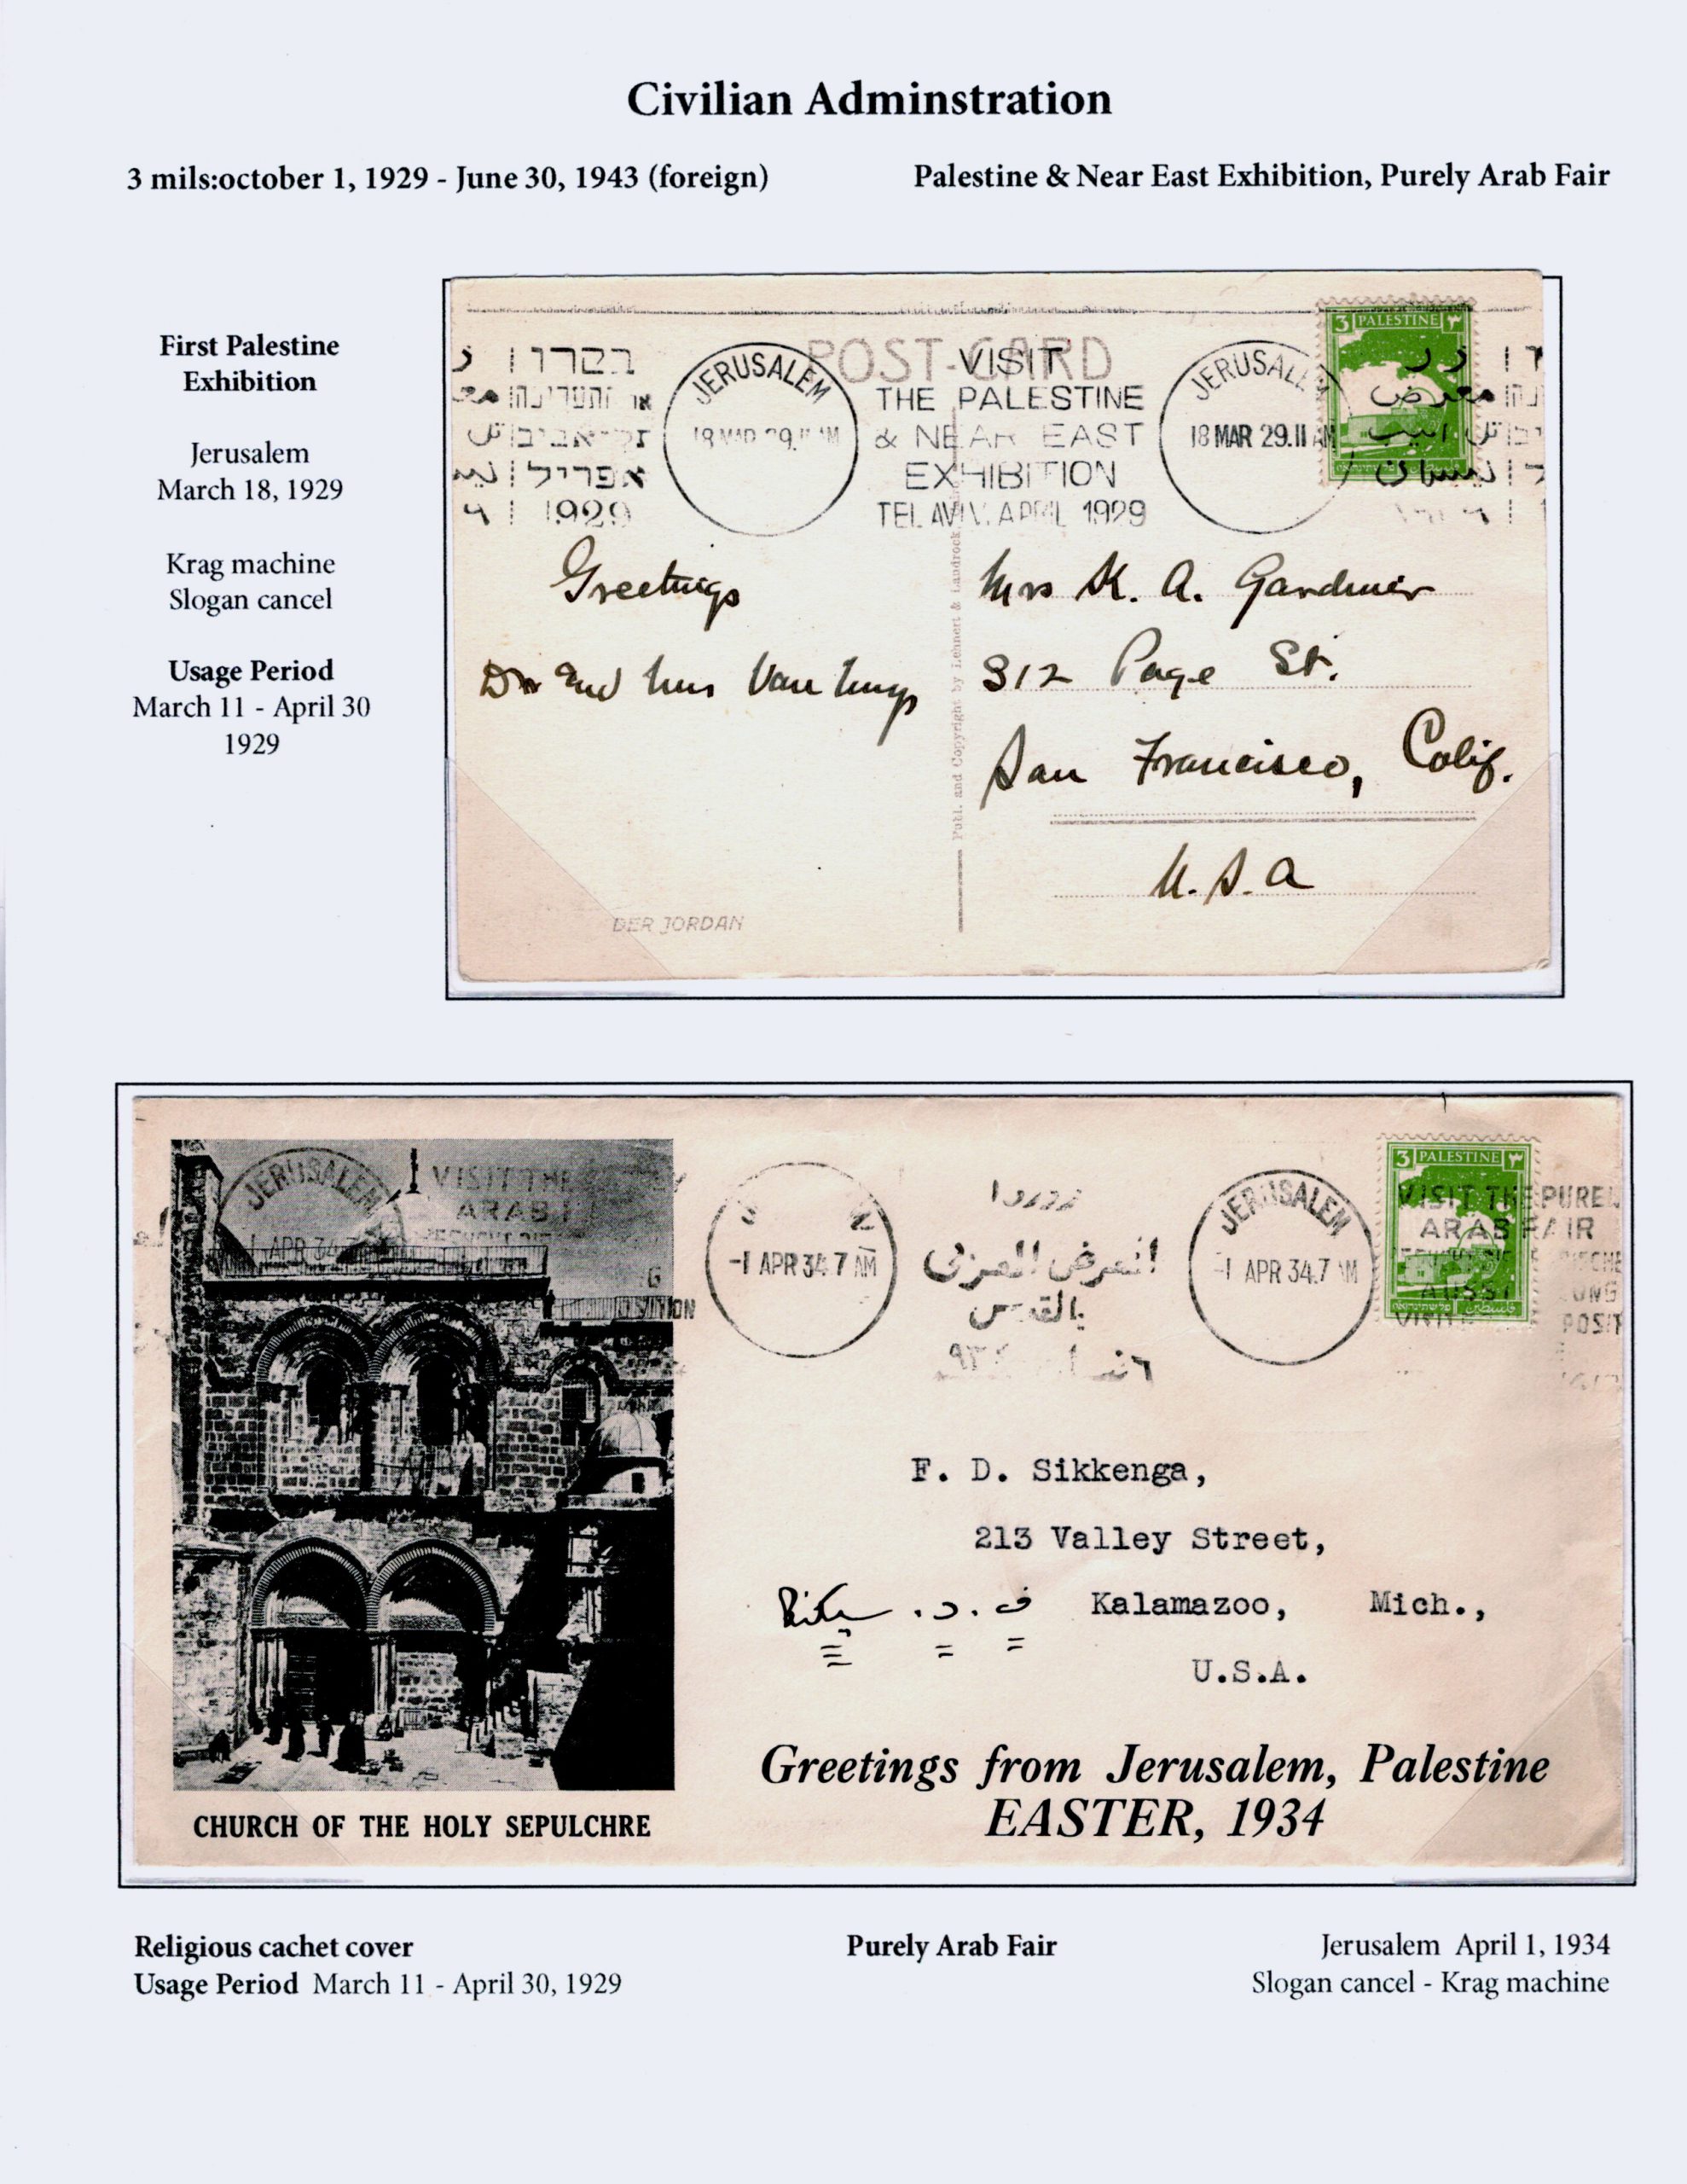 Civilian Adminstration
3 mils:october 1, 1929 - June 30, 1943 (foreign)
Palestine & Near East Exhibition, Purely Arab Fair
First Palestine
Exhibition
Jerusalem
March 18, 1929
Krag machine
Slogan cancel
Usage Period
March 11 - April 30
1929
POST-CARD
בקרו
1929
JERUSALEM
VISIT
THE PALESTINE
& NEAR EAST
EXHIBITION
TEL AVIV. APRIL 1929
JERUSALEM
18 MAR 29.11 AM
3 PALESTINE ٣
معرض
Greetings
Mrs K. A. Gardner
312 Page St.
San Francisco, Calif.
U.S.A
Publ. and Copyright by Lehnert & Landrock
DER JORDAN
JERUSALEM
1 APR 34
VISIT THE
ARAB
-1 APR 34.7 AM
زوروا
المعرض العربي
بالقدس
JERUSALEM
-1 APR 34.7 AM
3 PALESTINE ٣
VISIT THE PUREL
ARAB FAIR
F. D. Sikkenga,
213 Valley Street,
Kalamazoo, Mich.,
U.S.A.
Greetings from Jerusalem, Palestine
EASTER, 1934
CHURCH OF THE HOLY SEPULCHRE
Religious cachet cover
Usage Period March 11 - April 30, 1929
Purely Arab Fair
Jerusalem April 1, 1934
Slogan cancel - Krag machine